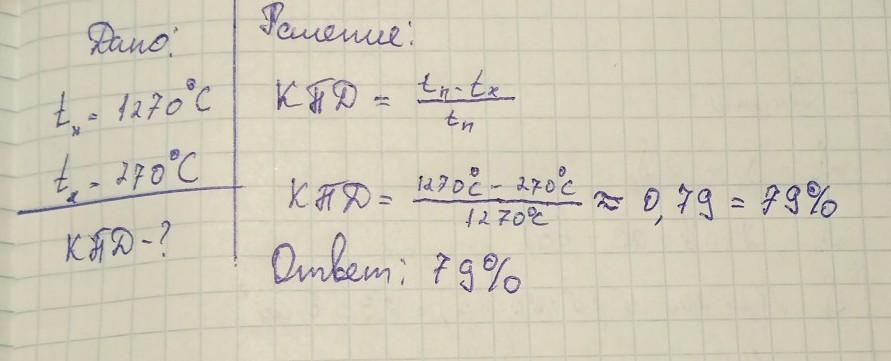 Дано:
tн = 1270°C
tx = 270°C
КПД - ?
Решение:
КПД = tн - tx / tн
КПД = 1270°C - 270°C / 1270°C ≈ 0,79 = 79%
Ответ: 79%